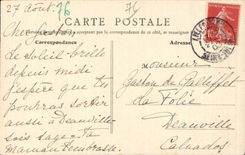 27 Août.
76
74
CARTE POSTALE
Correspondance
Cher
Le soleil brille
depuis midi
j'espère que tu
pourras sortir
aussi à Deauville
sois sage - ta
maman t'embrasse.
Monsieur
Gaston de Galliffet
La Folie
Deauville
Calvados